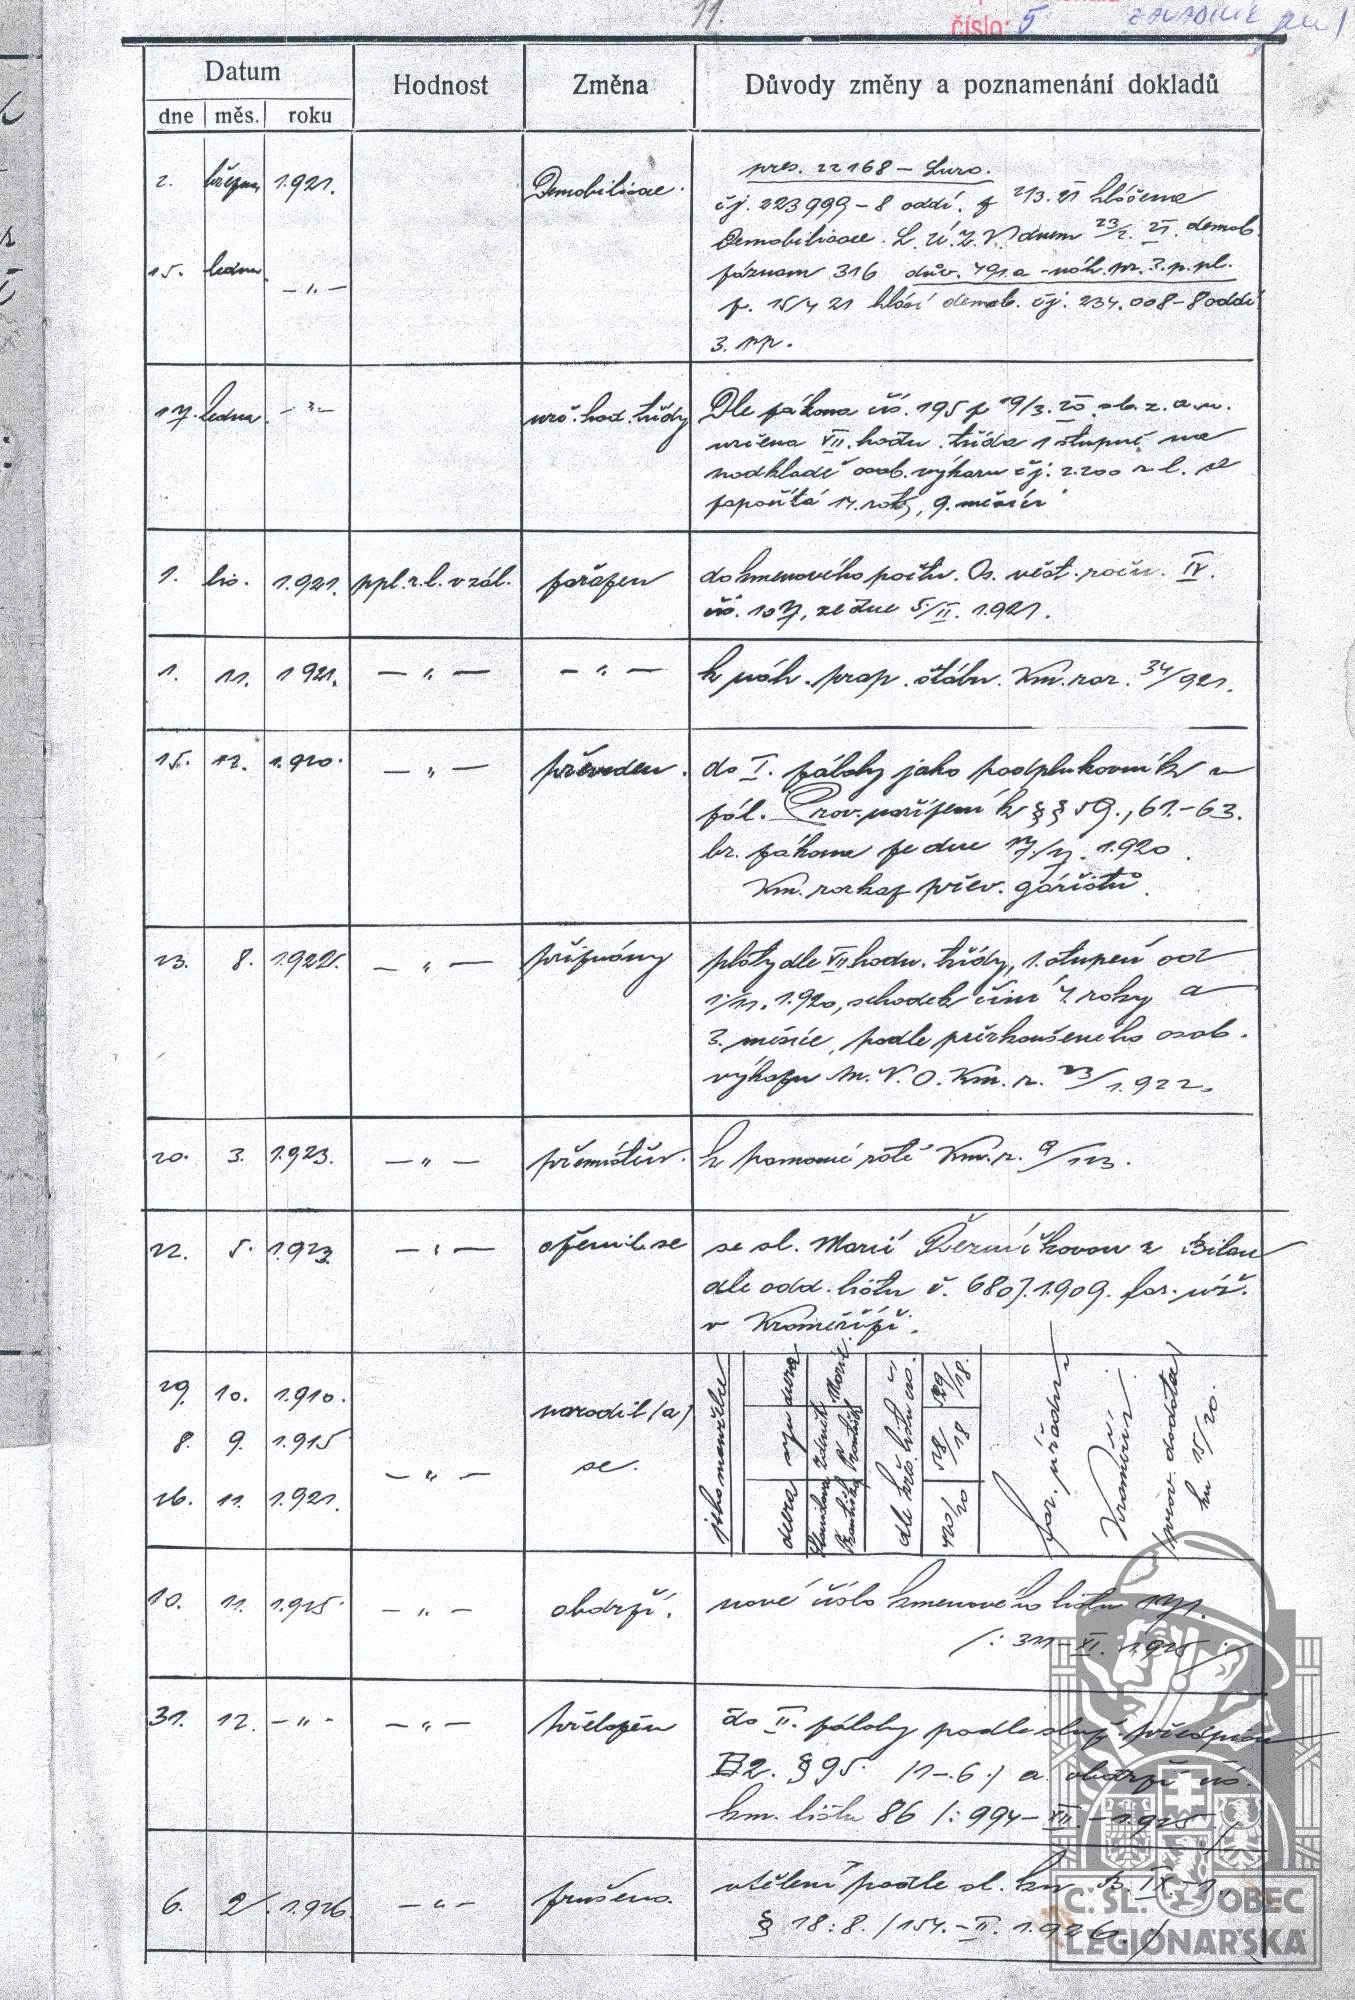 11.
číslo: 5
Datum
Hodnost
Změna
Důvody změny a poznamenání dokladů
dne měs. roku
2. března 1921. Demobilisace.
pres. 22168 –
čj. 223999–8 oddí. z 21/3. 21 hlášena
Demobilisace. dnem 23/2. 21. demob.
15. ledna –„–
záznam 316 dův. 191.a –náh. pr. 3. p. pl.
z. 15/4 21 hlásí demob. čj. 234.008–8 oddí
3. pp.
17. ledna –„– urč. hod. třídy
Dle zákona čís. 195 z 19/3. 20. sb. z. a. n.
určena VII. hodn. třída 1 stupně na
podkladě osob. výkazu čj. 2.200 se
započítá roků, 9. měsíců
1. lis. 1921. ppl. r. l. v zál. zařazen
do kmenového počtu. Os. věst. roču. IV.
čís. 107, ze dne 5/II. 1921.
1. 11. 1921. –„– –„–
k náh. prap. štábu. Km. roz. 34/921.
15. 12. 1920. –„– převeden.
do I. zálohy jako podplukovník v
zál. Prov. nařízení k §§ 59., 61.–63.
br. zákona ze dne 1920.
Km. rozkaz přev. gážistů.
23. 8. 1922. –„– přiznány
platy dle VII. hodn. třídy, 1. stupeň od
1/11. 1920, schodek činí roky a
3. měsíce, podle přezkoušeného osob.
výkazu M. N. O. Km. r. 23/1.922.
20. 3. 1923. –„– přemístěn.
k pomocné rotě Km. r. 9/123.
22. 5. 1923. –„– oženil se
se sl. Marií z
dle odd. listu č. 680/1909. far. úř.
v Kroměříži.
29. 10. 1910.
8. 9. 1915
26. 11. 1921.
–„–
narodil (a)
se.
jeho manželce
dcera syn dcera
Marie
Zdeněk František
Stanislava Františka
dle křs. listu čís.
529/18.
58/18
420/20
far. úřadu v
Kroměříži
(prov. dodatek
ku 15/20.
10. 11. 1925. –„– obdrží.
nové číslo kmenového listu 171.
/: 311–XI. 1925 :/
31. 12. –„– –„– přeložen
do II. zálohy podle služ. předpisu
B2. § 95. /1–.6./ a obdrží čís.
km. listu 86 /: 994–XII.–1925 :/
6. 2. 1926. –„– zrušeno.
vtělení podle sl. kn. B. IX.–1.
§ 18:8. /154.–II. 1.926./
Č. SL. OBEC
LEGIONÁŘSKÁ